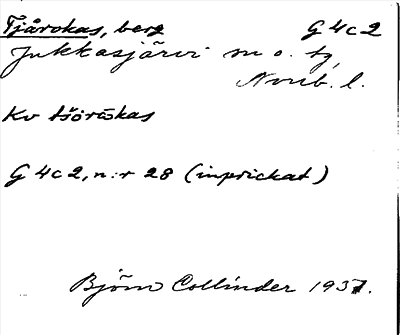 Tjårokas, berg G4c2
Jukkasjärvi sn o. tg,
Norrb. l.
Kv tšorōkas
G4c2, n:r 28 (inprickat)
Björn Collinder 1937.